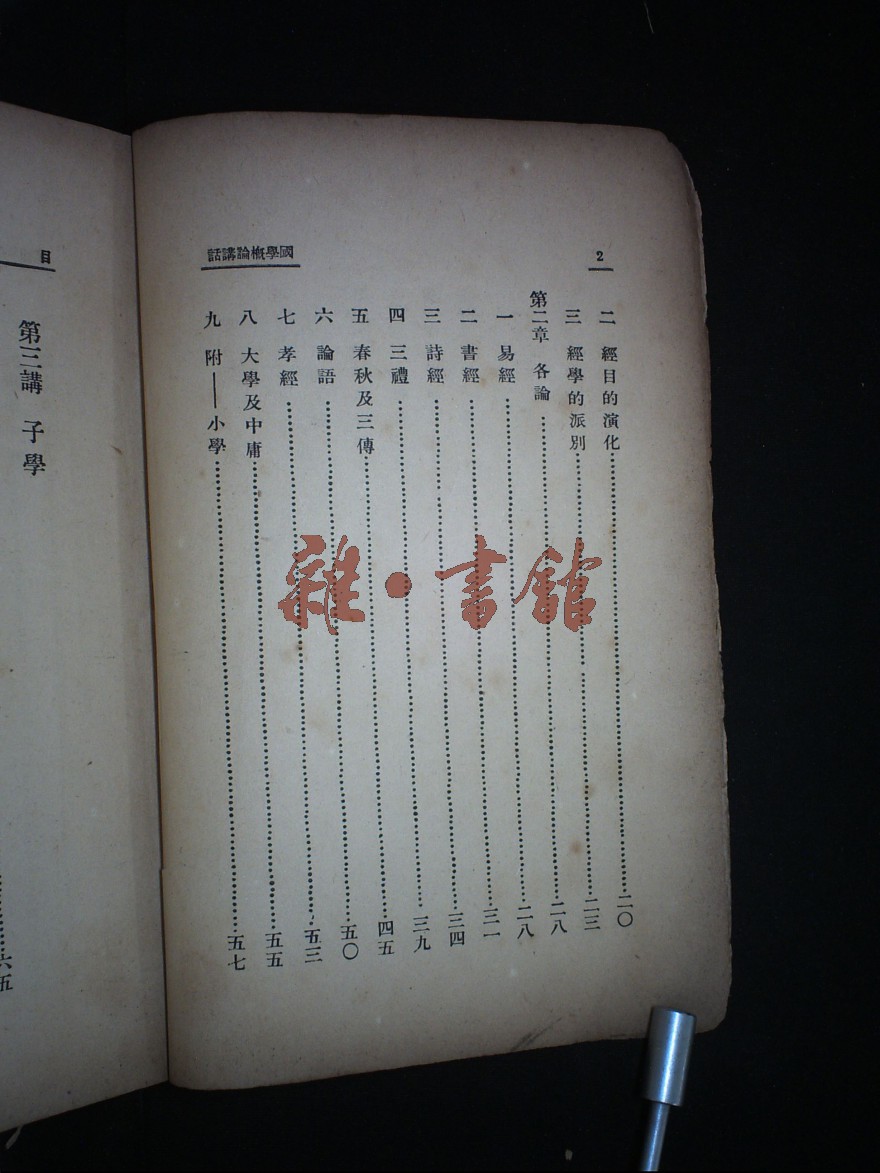 2
國學槪論講話
二 經目的演化……二〇
三 經學的派別……二三
第二章 各論……二八
一 易經……二八
二 書經……三一
三 詩經……三四
四 三禮……三九
五 春秋及三傳……四五
六 論語……五〇
七 孝經……五三
八 大學及中庸……五五
九 附——小學……五七
目
第三講 子學
……六五
雜·書館